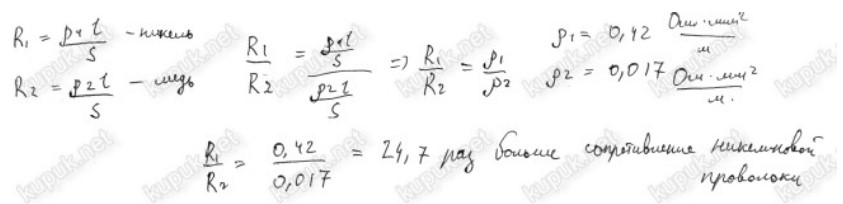 R₁ = ρ₁l/S – никель
R₂ = ρ₂l/S – медь
R₁/R₂ = (ρ₁l/S)/(ρ₂l/S) => R₁/R₂ = ρ₁/ρ₂
ρ₁ = 0,42 Ом·мм²/м
ρ₂ = 0,017 Ом·мм²/м.
R₁/R₂ = 0,42/0,017 = 24,7 раз больше сопротивление никелиновой
проволоки
kupuk.net